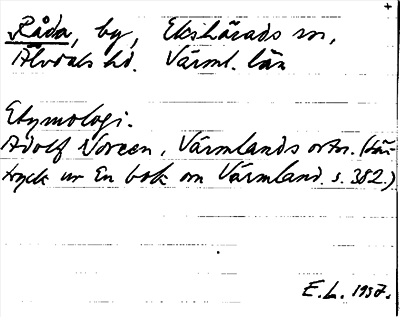 Råda, by, Ekshärads sn,
Älvdals hd. Värml. län
Etymologi.
Adolf Noreen, Värmlands ortn. (Sär-
tryck ur En bok om Värmland. s. 382.)
E.L. 1937.